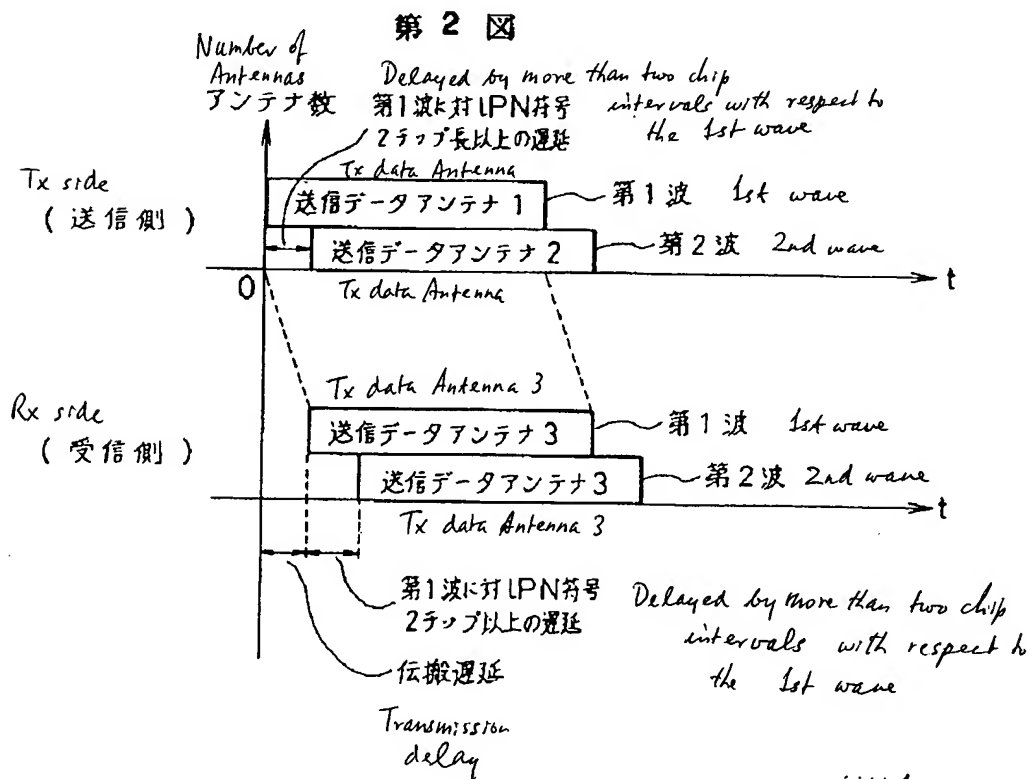 第2図
Number of
Antennas
アンテナ数
Delayed by more than two chip
intervals with respect to
the 1st wave
第1波に対しPN符号
2チップ長以上の遅延
Tx side
(送信側)
Tx data Antenna
送信データアンテナ1
第1波 1st wave
送信データアンテナ2
第2波 2nd wave
0
Tx data Antenna
t
Rx side
(受信側)
Tx data Antenna 3
送信データアンテナ3
第1波 1st wave
送信データアンテナ3
第2波 2nd wave
Tx data Antenna 3
t
第1波に対しPN符号
2チップ以上の遅延
Delayed by more than two chip
intervals with respect to
the 1st wave
伝搬遅延
Transmission
delay